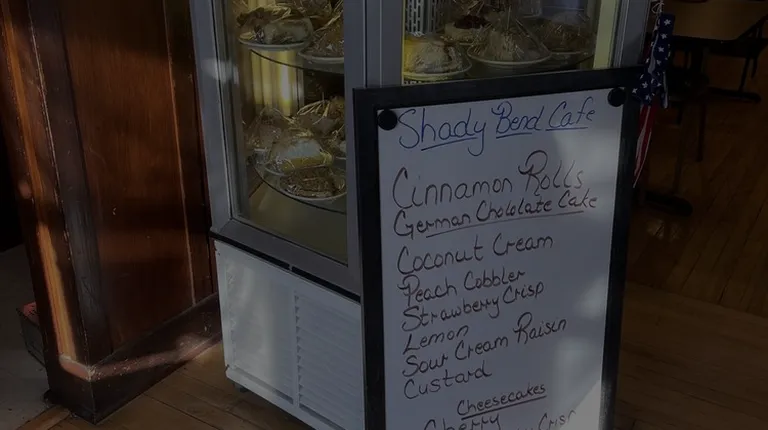 Shady Bend Cafe
Cinnamon Rolls
German Chololate Cake
Coconut Cream
Peach Cobbler
Strawberry Crisp
Lemon
Sour Cream Raisin
Custard
Cheesecakes
Cherry
Crisp